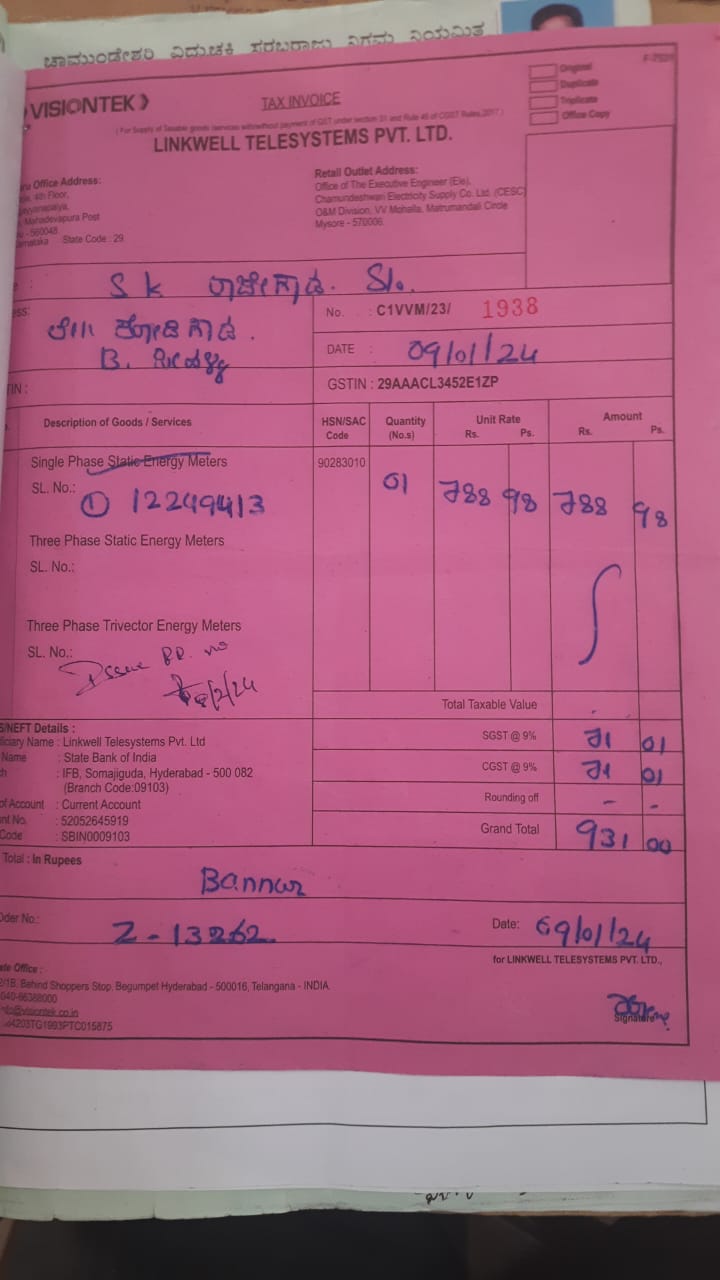 ಚಾಮುಂಡೇಶ್ವರಿ ವಿದ್ಯುಚ್ಛಕ್ತಿ ಸರಬರಾಜು ನಿಗಮ ನಿಯಮಿತ
F-7501
VISIONTEK
TAX INVOICE
Original
Duplicate
Triplicate
Office Copy
(For Supply of Taxable goods /services with/without payment of GST under section 31 and Rule 46 of CGST Rules,2017)
LINKWELL TELESYSTEMS PVT. LTD.
Office Address:
4th Floor,
Mahadevapura Post
- 560048.
State Code : 29
Retail Outlet Address:
Office of The Executive Engineer (Ele),
Chamundeshwari Electricity Supply Co. Ltd. (CESC)
O&M Division, VV Mohalla, Matrumandali Circle
Mysore - 570006.
S k S/o.
No. : C1VVM/23/ 1938
B.
DATE : 09/01/24
GSTIN : 29AAACL3452E1ZP
Description of Goods / Services
HSN/SAC Code
Quantity (No.s)
Unit Rate Rs. Ps.
Amount Rs. Ps.
Single Phase Static Energy Meters 90283010
SL. No.: ① 12249413 01 788 98 788 98
Three Phase Static Energy Meters
SL. No.:
Three Phase Trivector Energy Meters
SL. No.:
Issue no
/2/24
Total Taxable Value
NEFT Details :
Name : Linkwell Telesystems Pvt. Ltd
Name : State Bank of India
: IFB, Somajiguda, Hyderabad - 500 082
(Branch Code:09103)
of Account : Current Account
No. : 52052645919
Code : SBIN0009103
SGST @ 9% 71 01
CGST @ 9% 71 01
Rounding off - -
Grand Total 931 00
Total : In Rupees
Bannur
No.: Z-13262
Date: 09/01/24
for LINKWELL TELESYSTEMS PVT. LTD.,
Office :
Behind Shoppers Stop, Begumpet Hyderabad - 500016, Telangana - INDIA.
040-66388000
info@visiontek.co.in
4203TG1993PTC015875
Signature